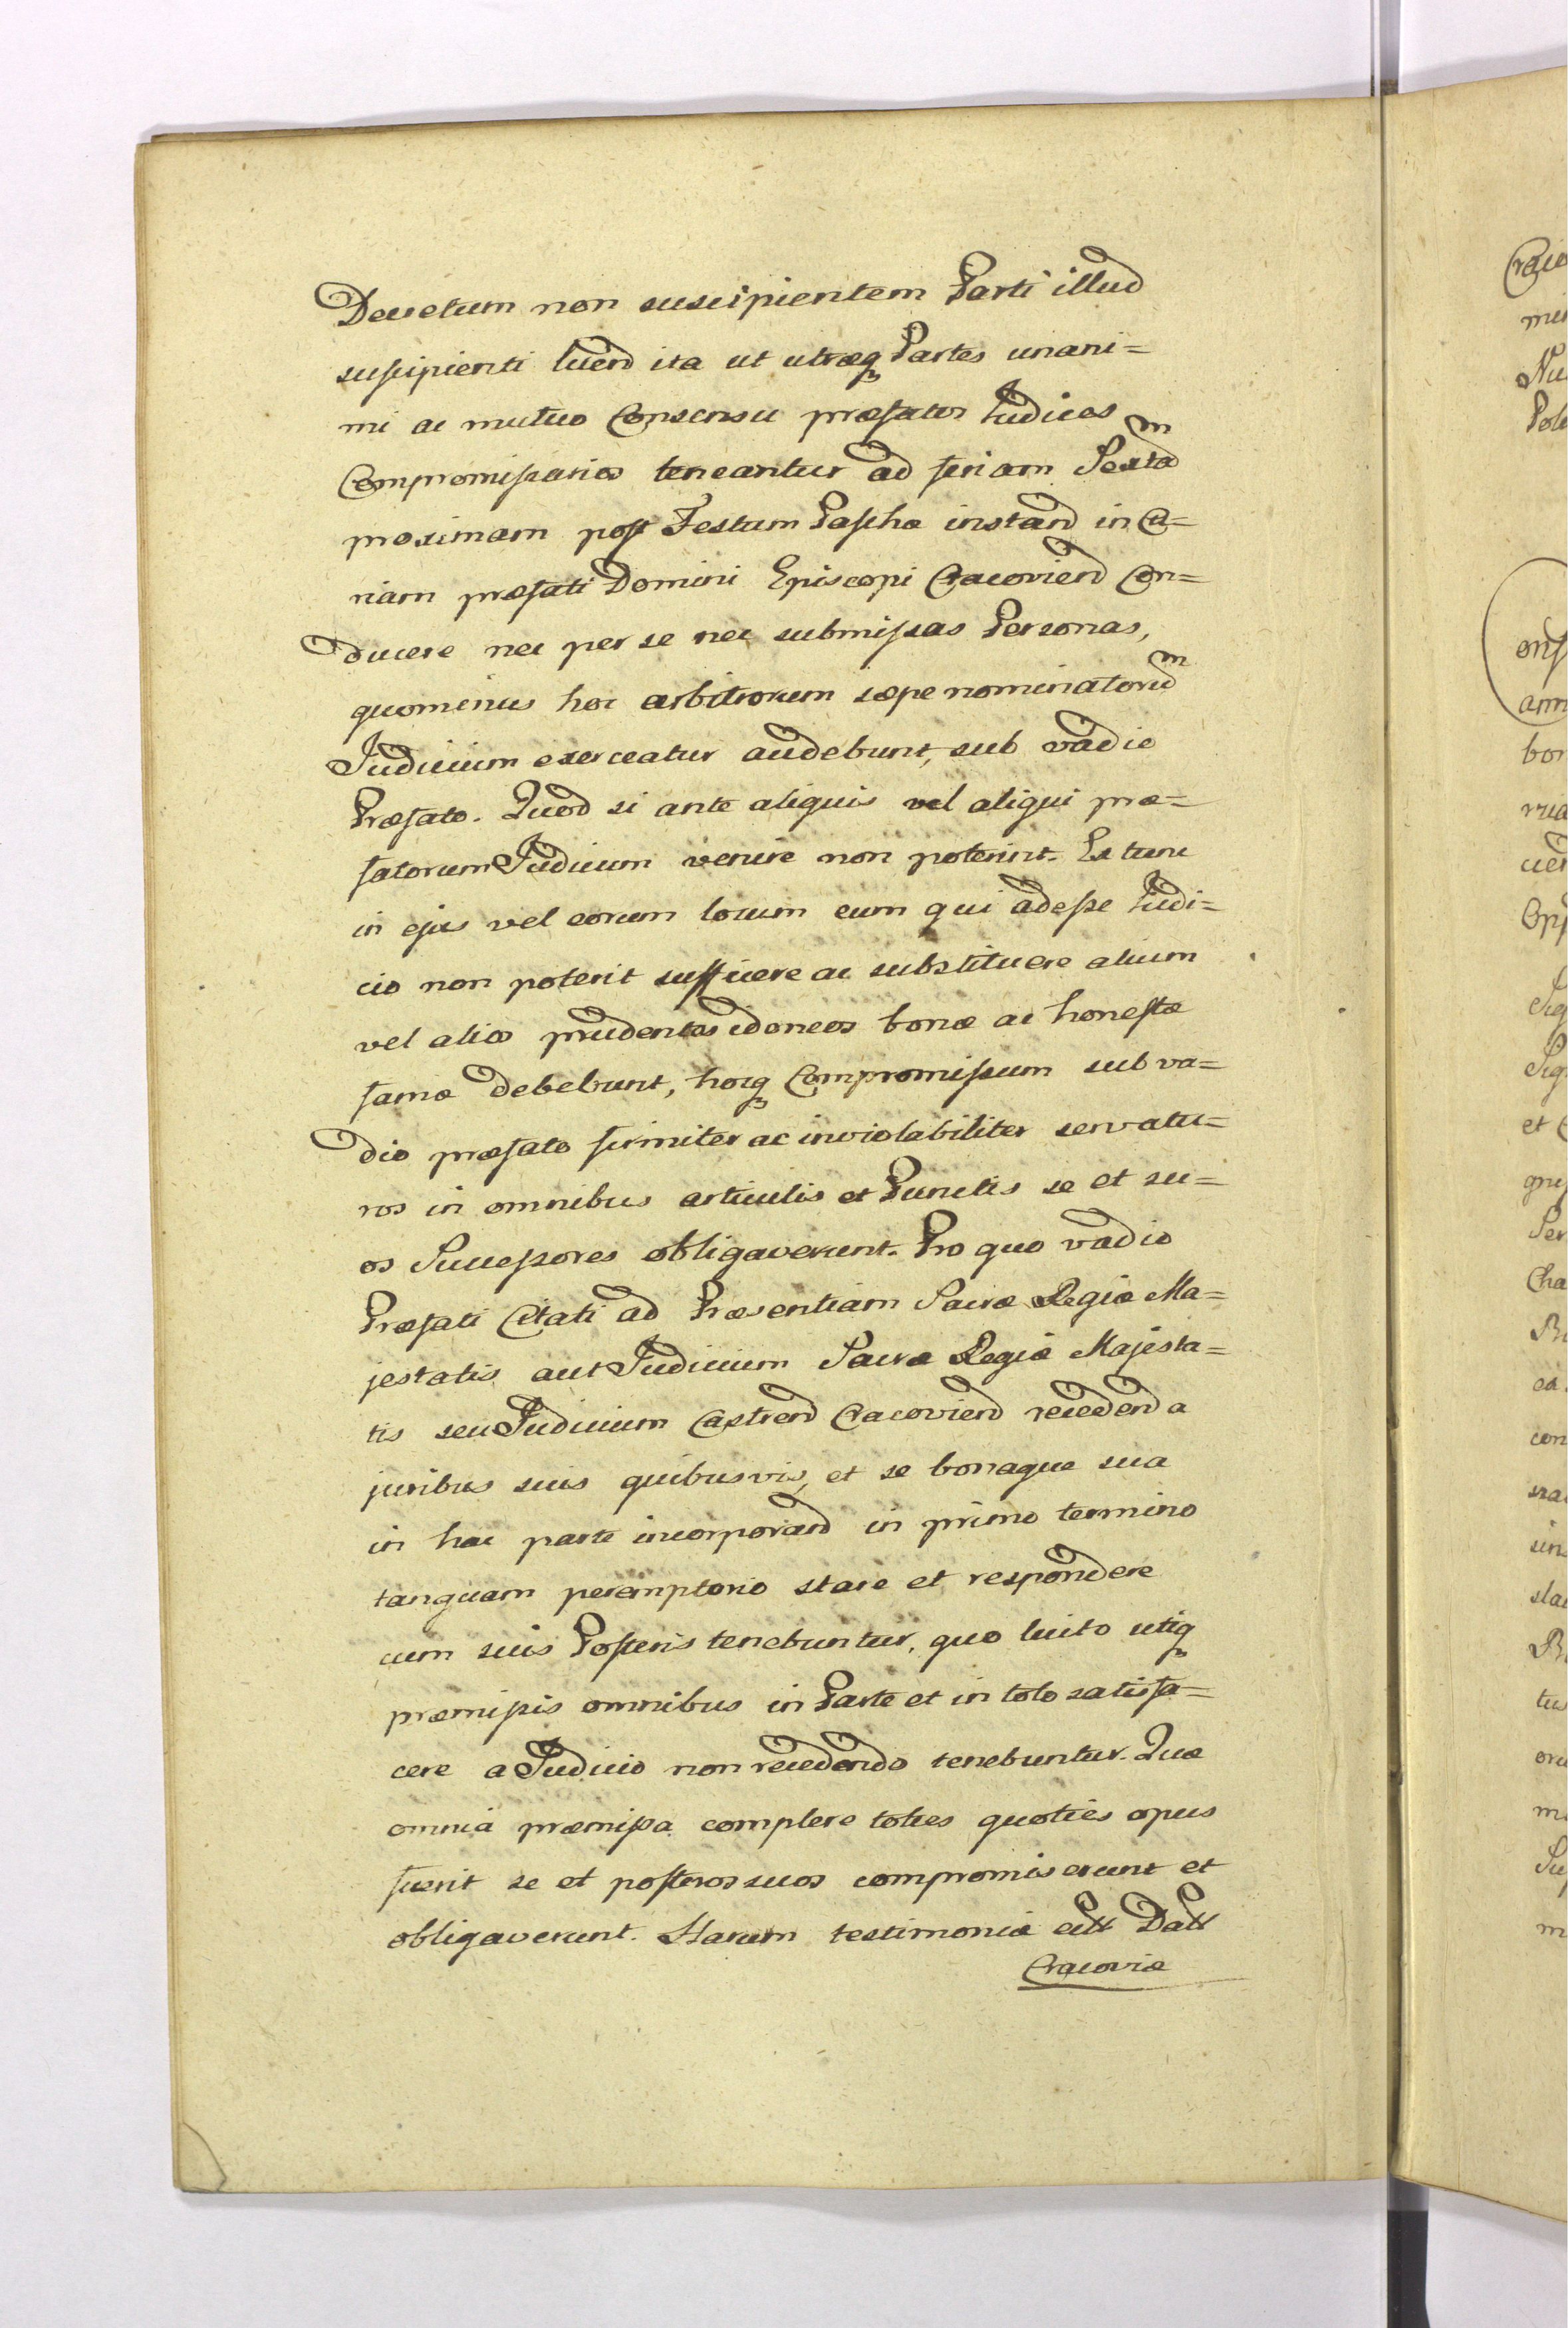 Decretum non suscipientem Parti illud
suscipienti luend ita ut utræq Partes unani=
mi ac mutuo Consensu præfatos Iudices
Compromissarios teneantur ad feriam Sexta m
proximam post Festum Paschæ instand in Cu=
riam præfati Domini Episcopi Cracoviend Con=
ducere nec per se nec submissas Personas,
quominus hoc arbitrorum sæpe nominatoru m
Judicium exerceatur audebunt, sub vadio
Præfato. Quod si ante aliquis vel aliqui præ=
fatorum Judicum venire non poterint. Ex tunc
in ejus vel eorum locum eum qui adesse Iudi=
cio non poterit sufficere ac substituere alium
vel alios prudentes idoneos bonæ ac honestæ
famæ debebunt, hocq Compromissum sub va=
dio præfato firmiter ac inviolabiliter servatu=
ros in omnibus articulis et Punctis se et su=
os Successores obligaverunt. Pro quo vadio
Præfati Citati ad Præsentiam Sacræ Regiæ Ma=
jestatis aut Judicium Sacræ Regiæ Majesta=
tis seu Judicium Castrend Cracoviend recedend a
juribus suis quibusvis, et se bonaque sua
in hac parte incorporand in primo termino
tanquam peremptorio stare et respondere
cum suis Posteris tenebuntur, quo luito utiq
præmissis omnibus in Parte et in toto satisfa=
cere a Judicio non recedendo tenebuntur. Quæ
omnia præmissa complere toties quoties opus
fuerit se et posteros suos compromiserunt et
obligaverunt. Harum testimoniæ Datt
Cracoviæ